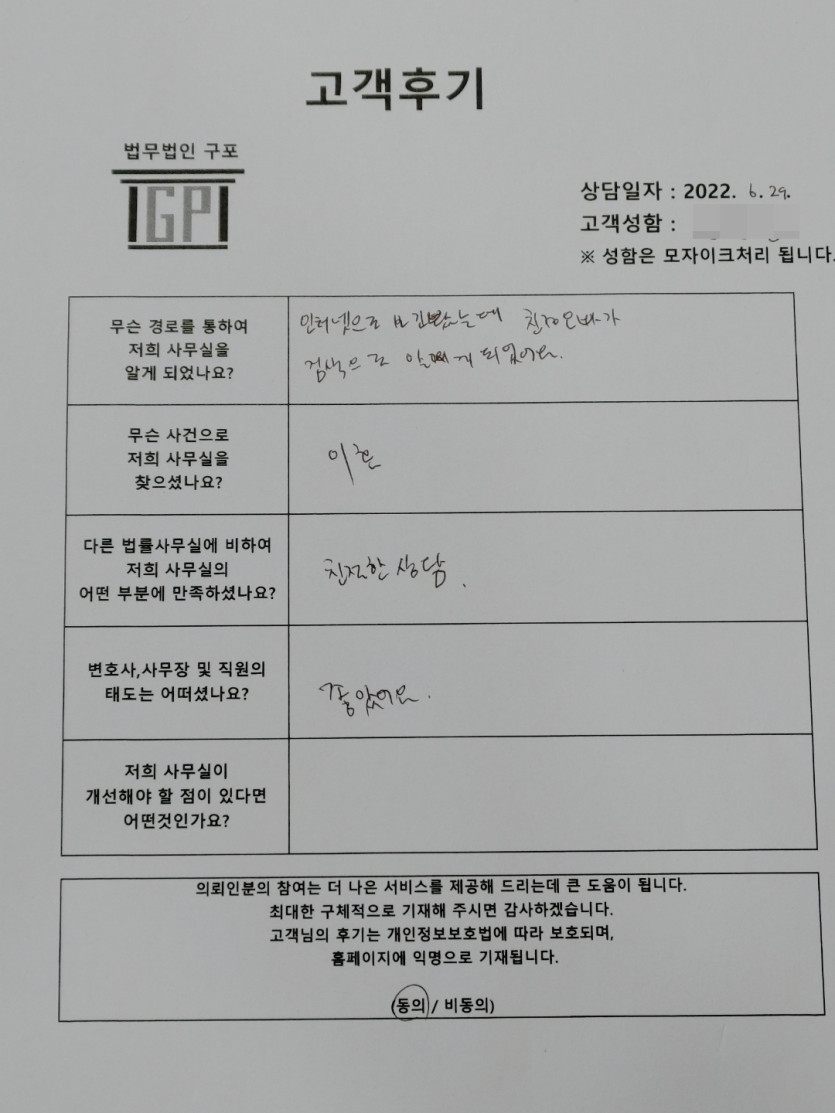 고객후기
법무법인 구포
IGPI
상담일자 : 2022. 6. 29.
고객성함 :
※ 성함은 모자이크처리 됩니다.
무슨 경로를 통하여
저희 사무실을
알게 되었나요?
인터넷으로 친정오빠가
검색으로 알게 되었어요.
무슨 사건으로
저희 사무실을
찾으셨나요?
이혼
다른 법률사무실에 비하여
저희 사무실의
어떤 부분에 만족하셨나요?
친절한 상담.
변호사,사무장 및 직원의
태도는 어떠셨나요?
좋았어요.
저희 사무실이
개선해야 할 점이 있다면
어떤것인가요?
의뢰인분의 참여는 더 나은 서비스를 제공해 드리는데 큰 도움이 됩니다.
최대한 구체적으로 기재해 주시면 감사하겠습니다.
고객님의 후기는 개인정보보호법에 따라 보호되며,
홈페이지에 익명으로 기재됩니다.
(동의 / 비동의)